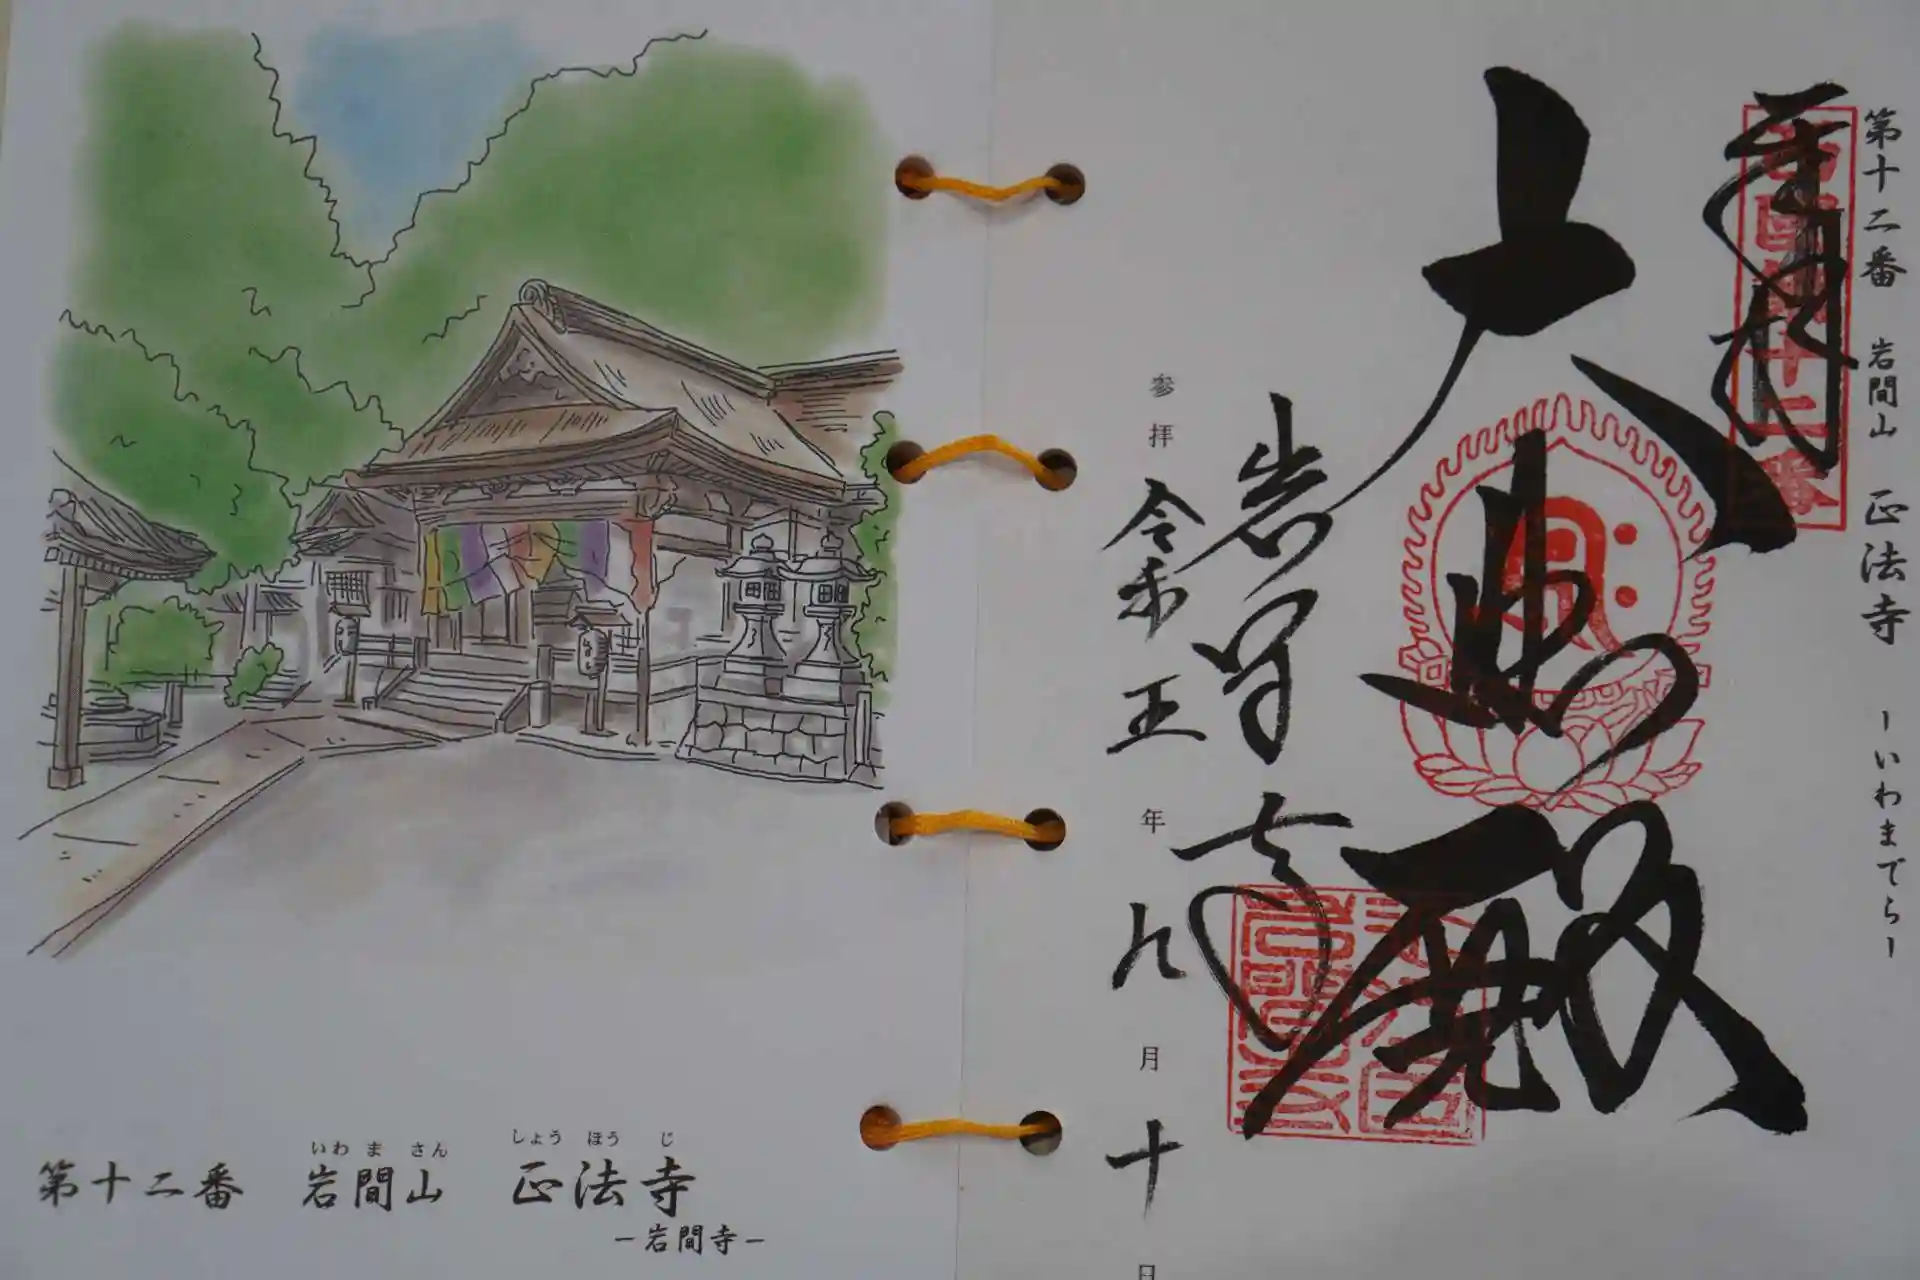 第十二番　岩間山　正法寺　ーいわまでらー
奉拝
西国第十二番
大悲殿
岩間寺
参拝 令和五年九月十日
いわ ま さん　しょう ほう じ
第十二番　岩間山　正法寺
ー岩間寺ー